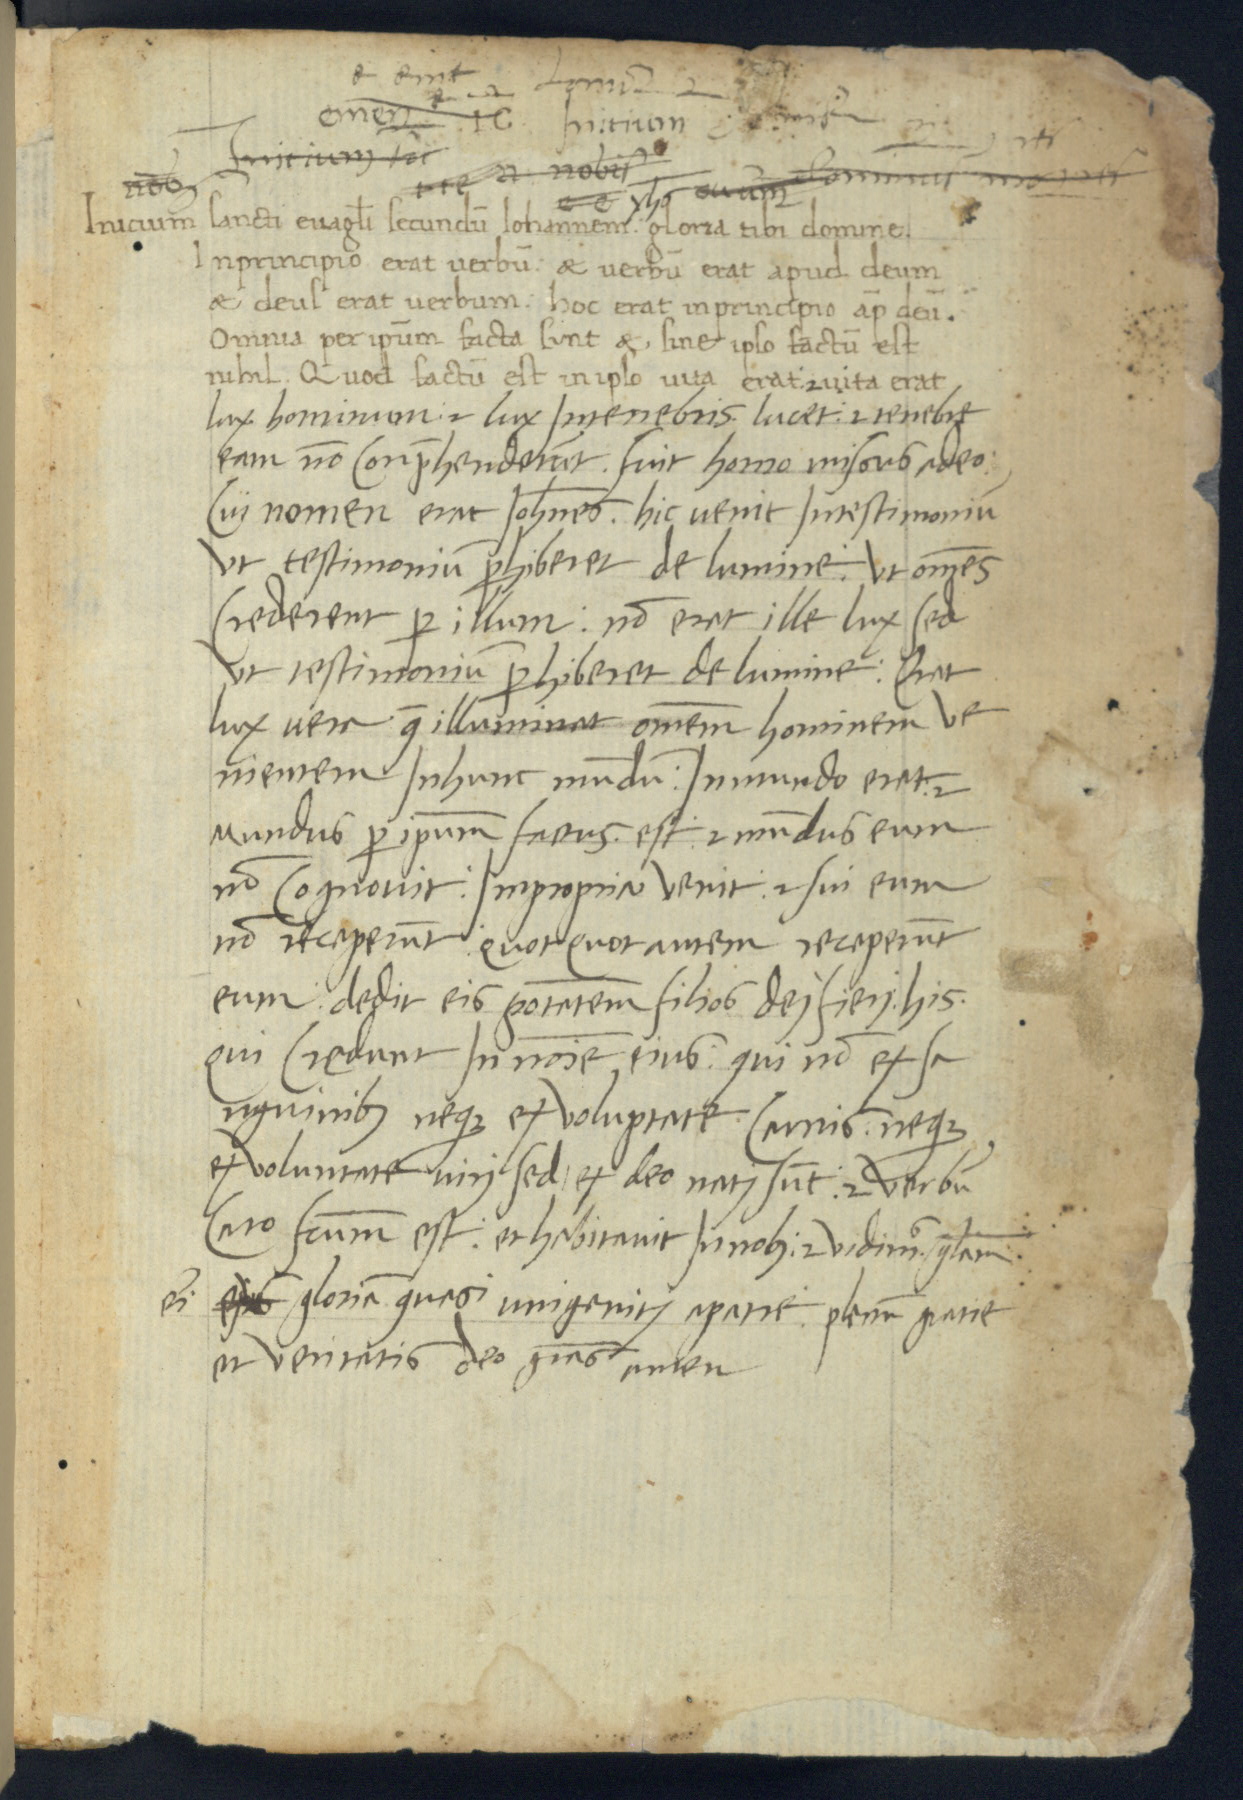 e erit
omen IC Initium
Inicium
nob a nobis dominus
xps
Inicium sancti evāgli̅ secundū Iohannem. gloria tibi domine.
Inprincipio erat verbū. & verbū erat apud deum
& deus erat verbum. hoc erat inprincipio ap̄ deū.
Omnia per ip̄um facta sunt & sine ipso factū est
nihil. Quod factū est in ipso uita erat. ⁊ uita erat
lux hominum: ⁊ lux Intenebris lucet: ⁊ tenebrę
eam nō Conp̄henderūt. fuit homo missus adeo:
Cuj nomen erat Ioh̄nes. hic uenit Intestimoniū
Vt testimoniū p̱hiberet de lumine: Vt om̄es
Crederent p̱ illum: nō erat ille lux sed
Vt testimoniū p̱hiberet de lumine: Erat
lux uera q̄ illuminat om̄em hominem Ve
nientem Inhunc mūdū: Inmundo erat: ⁊
Mundus p̱ ip̄um factus est: ⁊ mūdus eum
nō Cognouit: Inpropria Venit: ⁊ sui eum
nō receperūt: quotquot autem receperūt
eum: dedit eis potatem̄ filios dej fierj. his.
qui Credunt In noīe eius: qui nō ex sa
nguinibꝫ neqꝫ ex Voluptate Carnis: neqꝫ
ex Voluntate uirj sed ex deo natj sūt: ⁊ Verbū
Caro fc̄um est: et habitauit In nob: ⁊ Vidimꝰ gl̄am:
ei. ejus gloriā quasi unigenitj apatre. plenū gratie
et Veritatis deo gr̄as amen